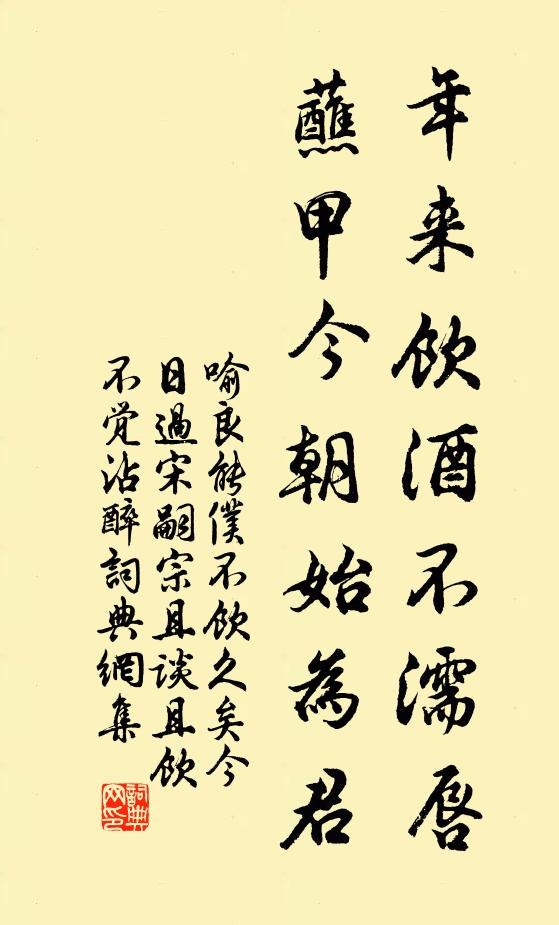 年来飲酒不濡唇
蘸甲今朝始為君
喻良能僕不飲久矣今
日過宋嗣宗且談且飲
不覚沾醉詞典網集
詞典网印